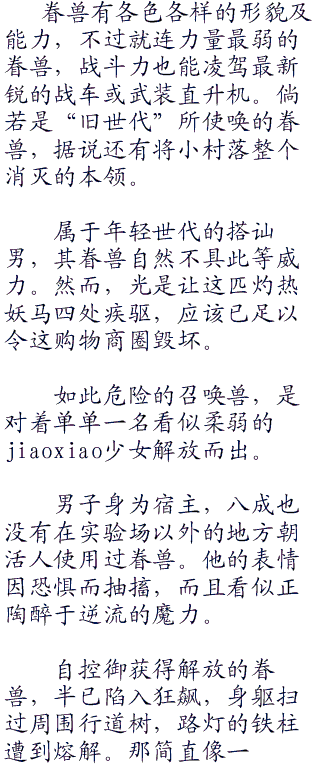 眷兽有各色各样的形貌及
能力，不过就连力量最弱的
眷兽，战斗力也能凌驾最新
锐的战车或武装直升机。倘
若是“旧世代”所使唤的眷
兽，据说还有将小村落整个
消灭的本领。
属于年轻世代的搭讪
男，其眷兽自然不具此等威
力。然而，光是让这匹灼热
妖马四处疾驱，应该已足以
令这购物商圈毁坏。
如此危险的召唤兽，是
对着单单一名看似柔弱的
jiaoxiao少女解放而出。
男子身为宿主，八成也
没有在实验场以外的地方朝
活人使用过眷兽。他的表情
因恐惧而抽搐，而且看似正
陶醉于逆流的魔力。
自控御获得解放的眷
兽，半已陷入狂飙，身躯扫
过周围行道树，路灯的铁柱
遭到熔解。那简直像一